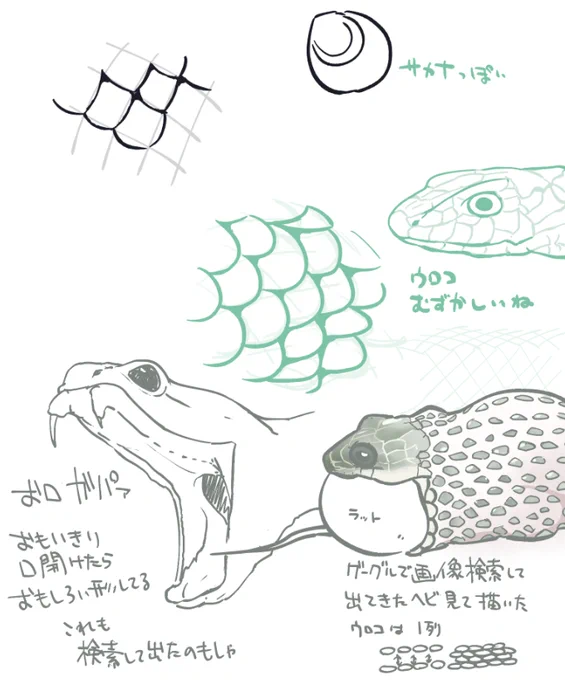 サカナっぽい
ウロコ
むずかしいね
お口ガパァ
おもいきり
口開けたら
おもしろい形してる
これも
検索して出たのもしゃ
ラット
グーグルで画像検索して
出てきたヘビ見て描いた
ウロコは1列